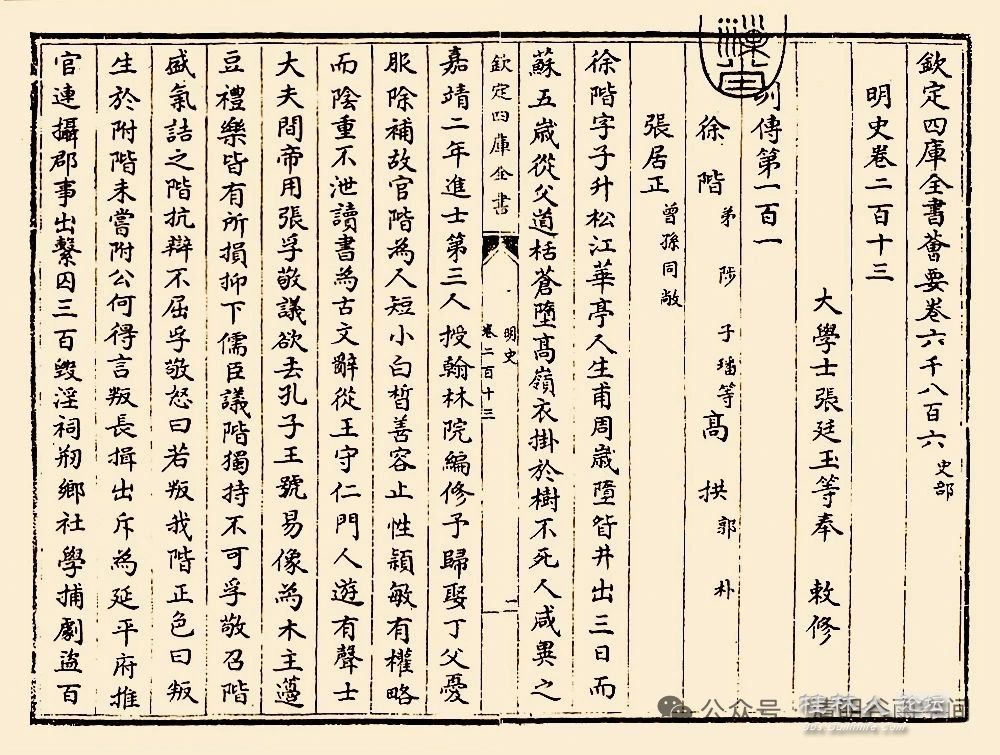 欽定四庫全書薈要卷六千八百六 史部
明史卷二百十三
大學士張廷玉等奉 敕修
列傳第一百一
徐階 弟陟 子璠等 高拱 郭朴
張居正 曾孫同敞
徐階字子升松江華亭人生甫周歲墮眢井出三日而
蘇五歲從父道栝蒼墮高嶺衣掛於樹不死人咸異之
欽定四庫全書 明史 卷二百十三 二
嘉靖二年進士第三人授翰林院編修予歸娶丁父憂
服除補故官階為人短小白皙善容止性穎敏有權略
而陰重不泄讀書為古文辭從王守仁門人遊有聲士
大夫間帝用張孚敬議欲去孔子王號易像為木主籩
豆禮樂皆有所損抑下儒臣議階獨持不可孚敬召階
盛氣詰之階抗辯不屈孚敬怒曰若叛我階正色曰叛
生於附階未嘗附公何得言叛長揖出斥為延平府推
官連攝郡事出繫囚三百毀淫祠剏鄉社學捕劇盜百
公众号
桂林人论坛